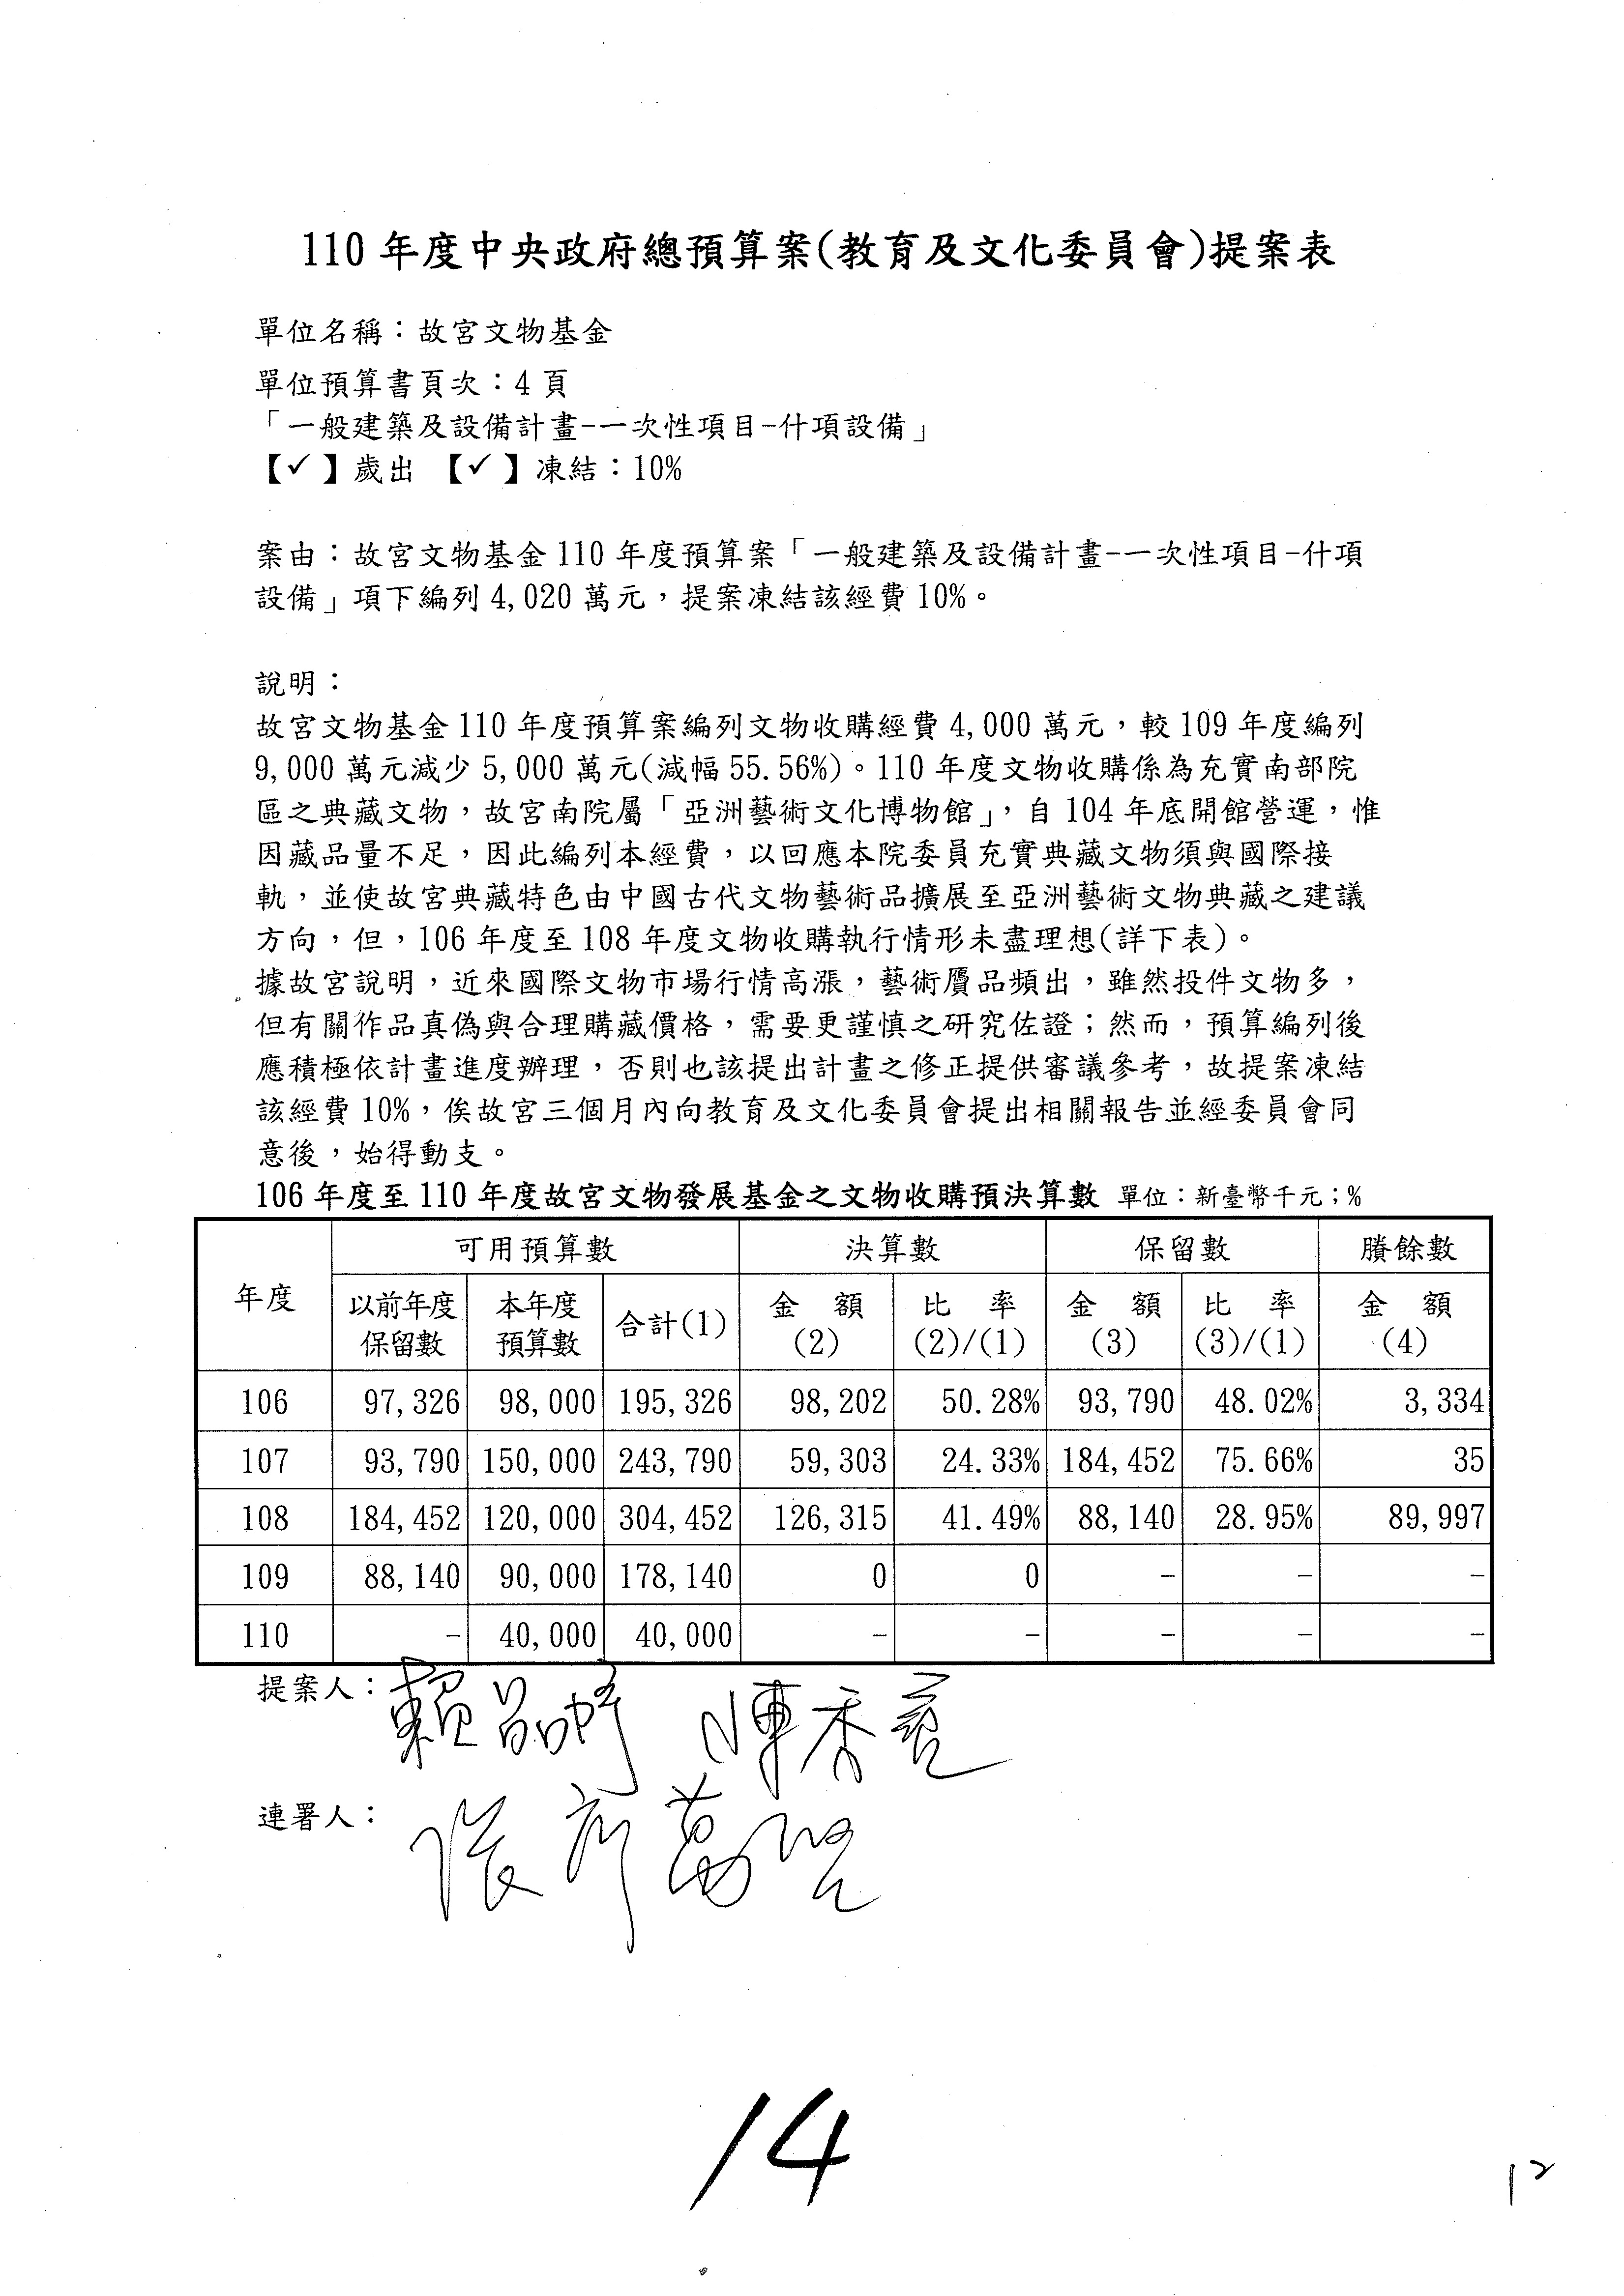 110 年度中央政府總預算案(教育及文化委員會)提案表
單位名稱：故宮文物基金
單位預算書頁次：4 頁
「一般建築及設備計畫-一次性項目-什項設備」
【✓】歲出 【✓】凍結：10%
案由：故宮文物基金 110 年度預算案「一般建築及設備計畫-一次性項目-什項
設備」項下編列 4,020 萬元，提案凍結該經費 10%。
說明：
故宮文物基金 110 年度預算案編列文物收購經費 4,000 萬元，較 109 年度編列
9,000 萬元減少 5,000 萬元(減幅 55.56%)。110 年度文物收購係為充實南部院
區之典藏文物，故宮南院屬「亞洲藝術文化博物館」，自 104 年底開館營運，惟
因藏品量不足，因此編列本經費，以回應本院委員充實典藏文物須與國際接
軌，並使故宮典藏特色由中國古代文物藝術品擴展至亞洲藝術文物典藏之建議
方向，但，106 年度至 108 年度文物收購執行情形未盡理想(詳下表)。
據故宮說明，近來國際文物市場行情高漲，藝術贗品頻出，雖然投件文物多，
但有關作品真偽與合理購藏價格，需要更謹慎之研究佐證；然而，預算編列後
應積極依計畫進度辦理，否則也該提出計畫之修正提供審議參考，故提案凍結
該經費 10%，俟故宮三個月內向教育及文化委員會提出相關報告並經委員會同
意後，始得動支。
106 年度至 110 年度故宮文物發展基金之文物收購預決算數 單位：新臺幣千元；%
年度 可用預算數 決算數 保留數 賸餘數
以前年度保留數 本年度預算數 合計(1) 金 額(2) 比 率(2)/(1) 金 額(3) 比 率(3)/(1) 金 額(4)
106 97,326 98,000 195,326 98,202 50.28% 93,790 48.02% 3,334
107 93,790 150,000 243,790 59,303 24.33% 184,452 75.66% 35
108 184,452 120,000 304,452 126,315 41.49% 88,140 28.95% 89,997
109 88,140 90,000 178,140 0 0 - - -
110 - 40,000 40,000 - - - - -
提案人：賴品妤 陳秀寳
連署人：張廖萬堅
14
12